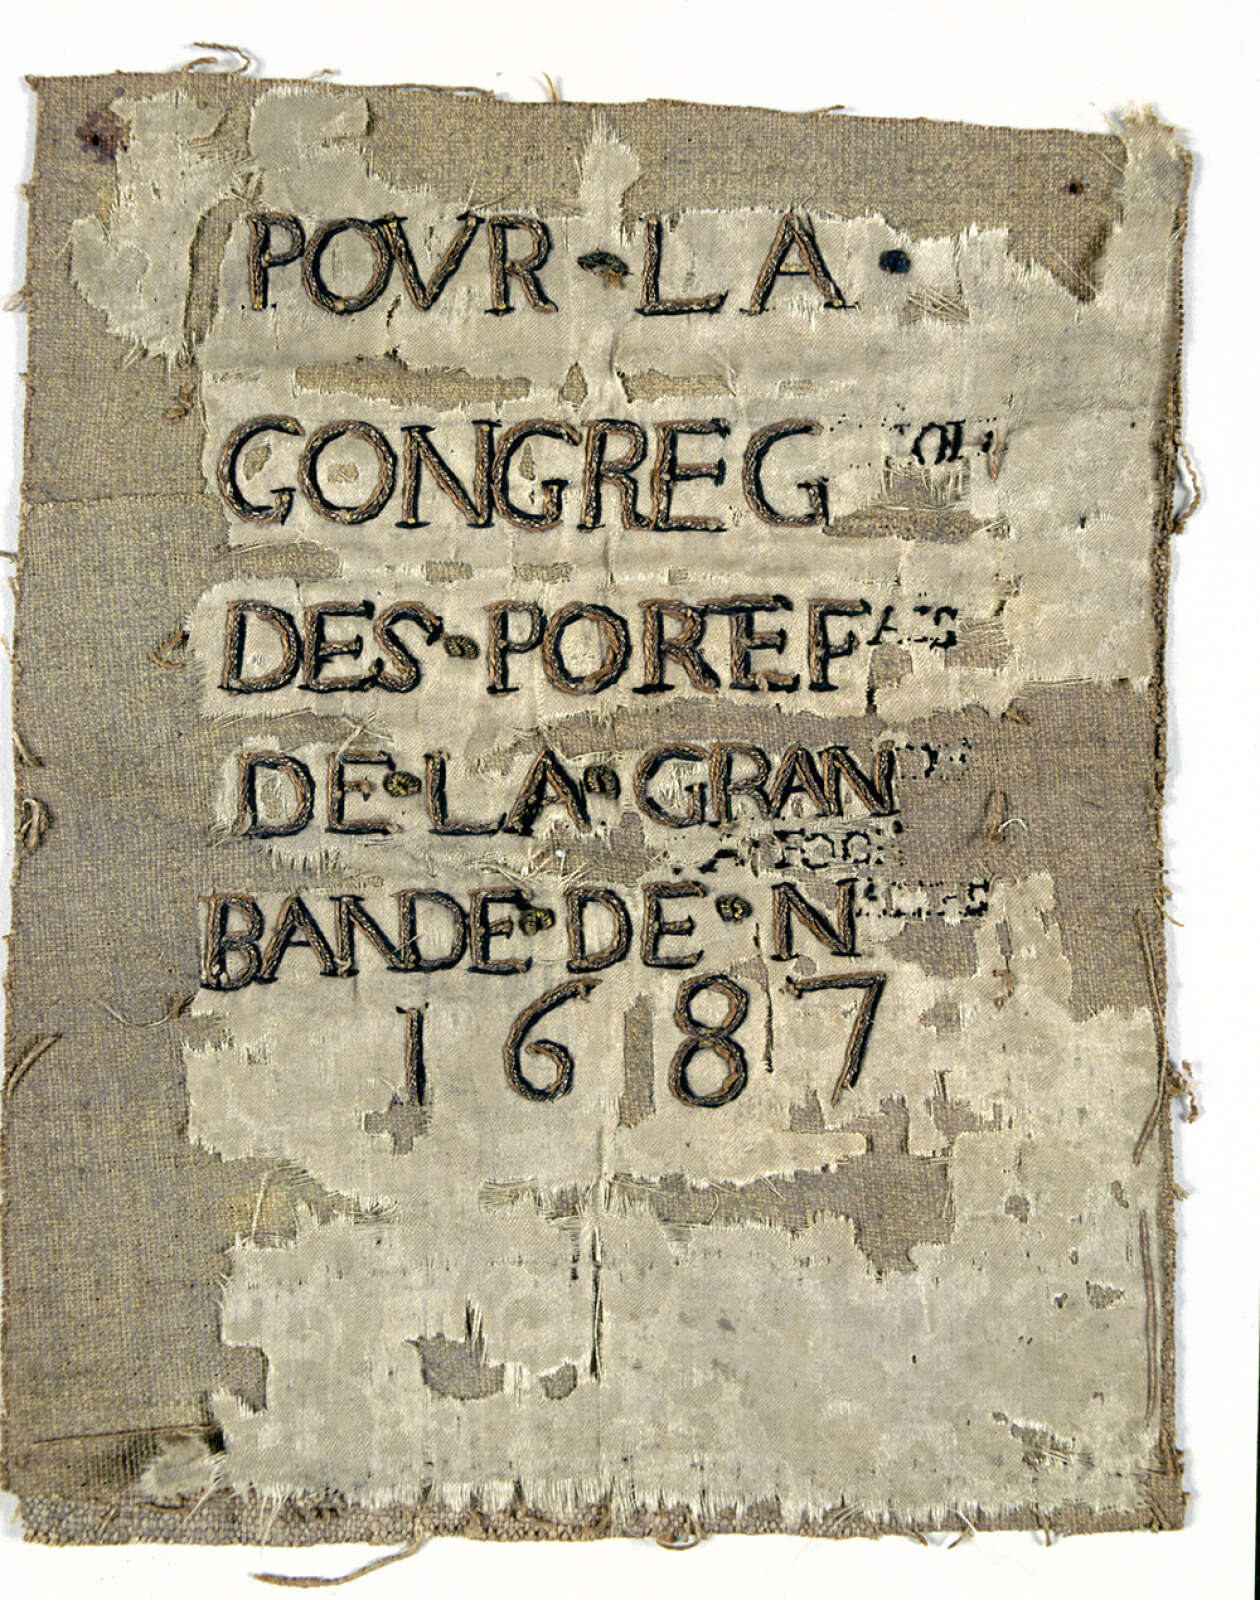 POVR · LA ·
CONGREG
DES · POREF
DE · LA · GRAN
BANDE · DE · N
1687